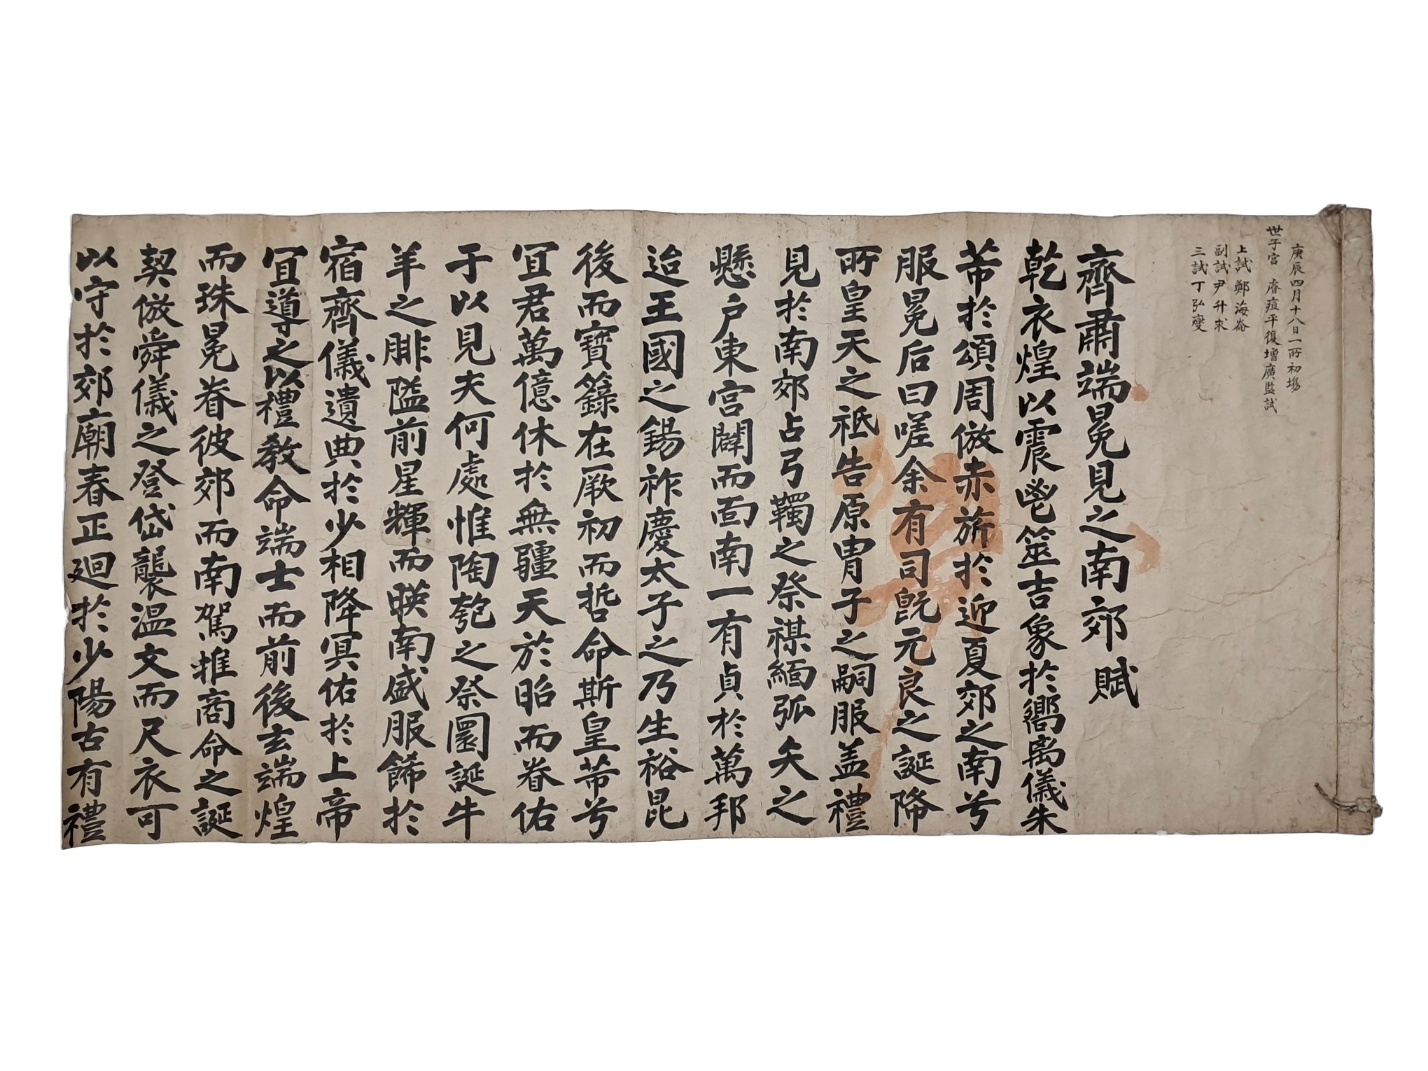 庚辰四月十八日一所初場
世子宮 痘平復增廣監試
上試鄭海崙
副試尹升求
三試丁弘燮
齊肅端冕見之南郊賦
乾衣煌以震鬯筮吉象於嚮离儀朱
芾於頌周倣赤旂於迎夏郊之南兮
服冕后曰嗟余有司旣元良之誕降
所皇天之祗告原冑子之嗣服盖禮
見於南郊占弓韣之祭禖緬弧矢之
懸户東宫闢而面南一有貞於萬邦
迨王國之錫祚慶太子之乃生裕昆
後而寶籙在厥初而哲命斯皇芾兮
冝君萬億休於無疆天於昭而眷佑
于以見夫何處惟陶匏之祭圜誕牛
羊之腓隘前星輝而暎南盛服餙於
宿齊儀遺典於少相降冥佑於上帝
冝導之以禮教命端士而前後玄端煌
而珠冕眷彼郊而南駕推商命之誕
契倣舜儀之登岱襲溫文而尺衣可
以守於郊廟春正廻於少陽古有禮